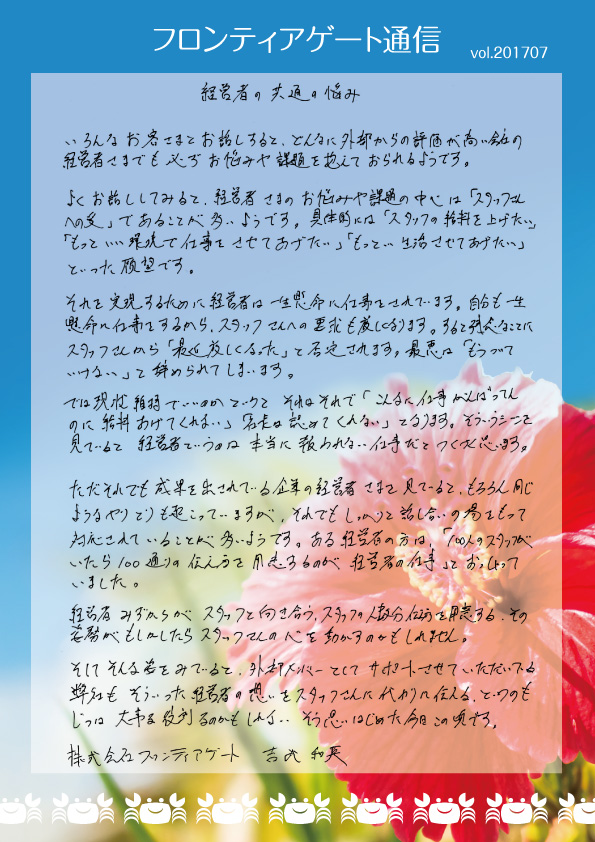 フロンティアゲート通信
vol.201707
経営者の共通の悩み
いろんなお客さまとお話しすると、どんなに外部からの評価が高い会社の
経営者さまでも必ずお悩みや課題を抱えておられるようです。
よくお話ししてみると、経営者さまのお悩みや課題の中心は「スタッフさん
への愛」であることが多いようです。具体的には「スタッフの給料を上げたい」
「もっといい環境で仕事をさせてあげたい」「もっといい生活させてあげたい」
といった願望です。
それを実現するために経営者は一生懸命に仕事をされています。自分も一生
懸命に仕事をするから、スタッフさんへの要求も厳しくなります。すると残念なことに
スタッフさんから「最近厳しくなった」と否定されます。最悪は「もうついて
いけない」と辞められてしまいます。
では現状維持でいいのかというと それはそれで「こんなに仕事がんばってん
のに給料あげてくれない」「店長は認めてくれない」となります。そういうシーンを
見ていると 経営者というのは本当に報われない仕事だとつくづく思います。
ただそれでも成果を出されている企業の経営者さまを見ていると、もちろん同じ
ようなやりとりも起こっていますが、それでもしっかりと話し合いの場をもって
対応されていることが多いようです。ある経営者の方は、「100人のスタッフが
いたら100通りの伝え方を用意するのが 経営者の仕事」とおっしゃって
いました。
経営者みずからが スタッフと向き合う、スタッフの人数分伝え方を用意する、その
姿勢がもしかしたらスタッフさんの心を動かすのかもしれません。
そしてそんな姿をみていると、外部メンバーとしてサポートさせていただいている
弊社も そういった経営者の想いをスタッフさんに代わりに伝える、というのも
じつは大事な役割なのかもしれない、そう思いはじめた今日この頃です。
株式会社フロンティアゲート 吉 和英